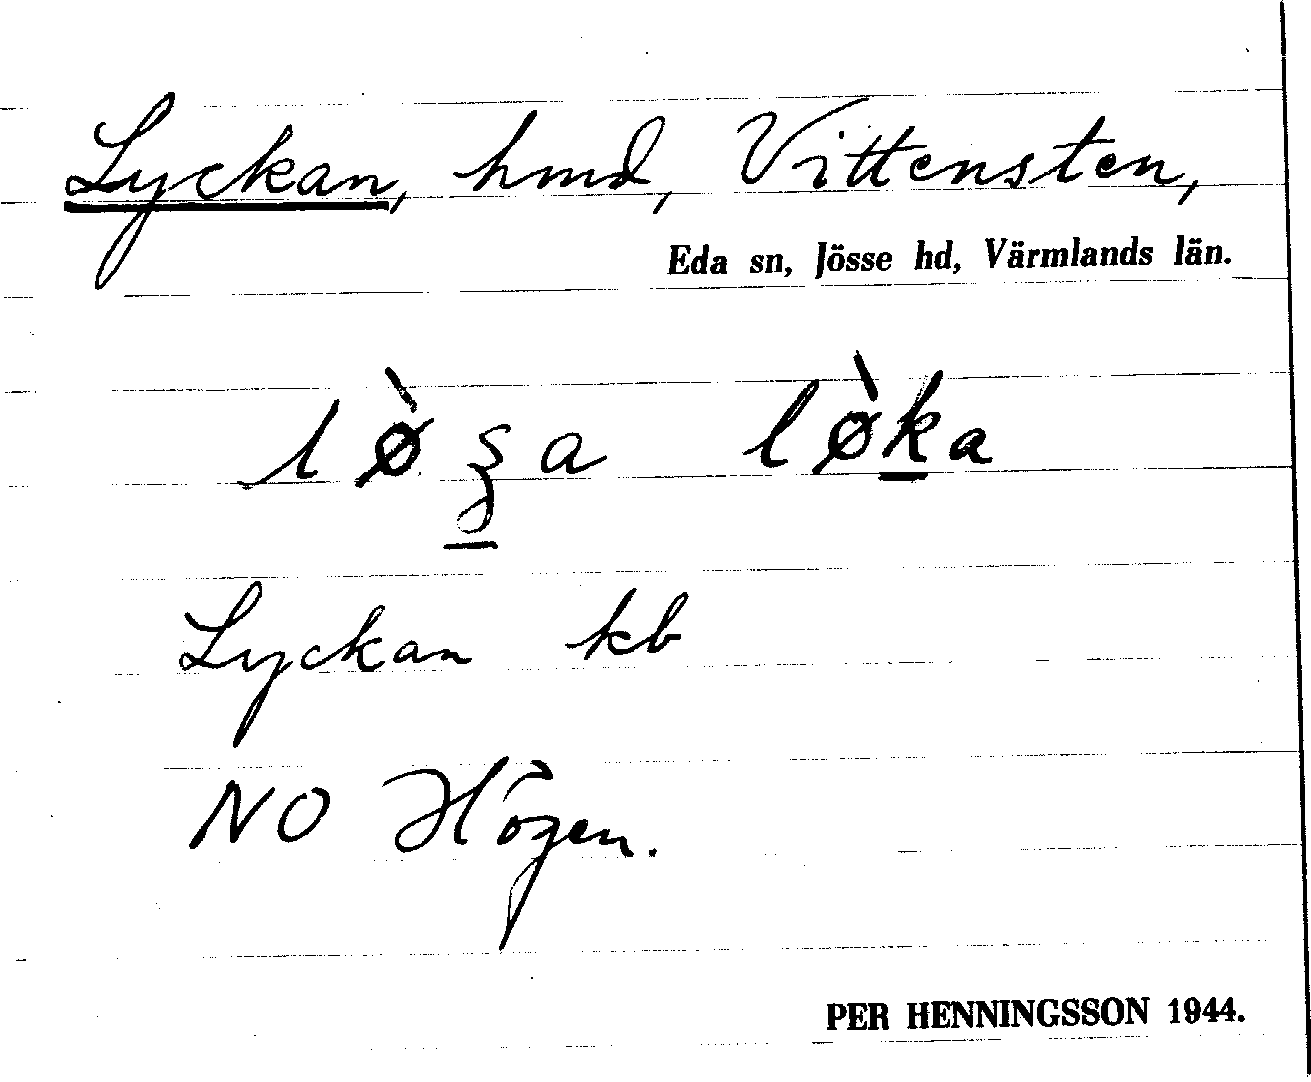 Lyckan, hmd, Vittensten,
Eda sn, Jösse hd, Värmlands län.
lø̀ʒ̱a lø̀ḵa
Lyckan kb
NO Högen.
PER HENNINGSSON 1944.